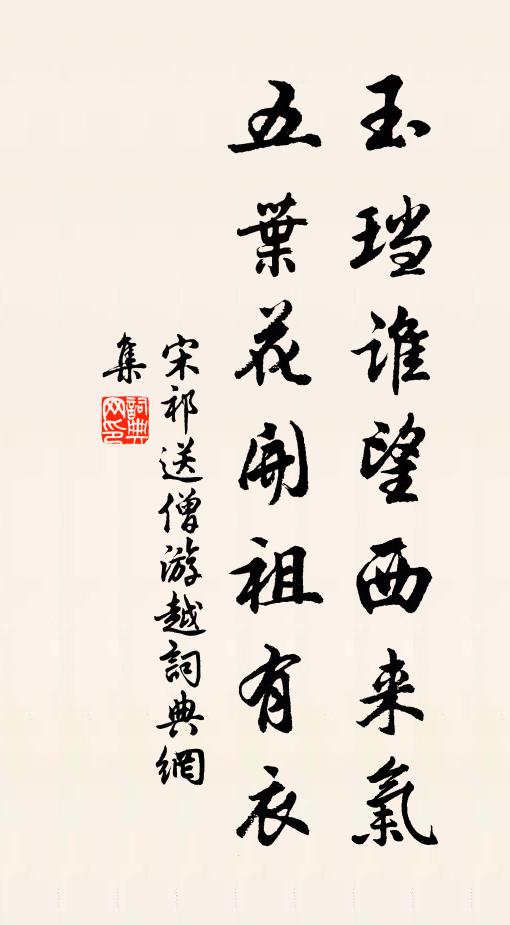 玉珰谁望西来氣
五葉花開祖有衣
宋祁送僧游越詞典網
集
詞典
网印